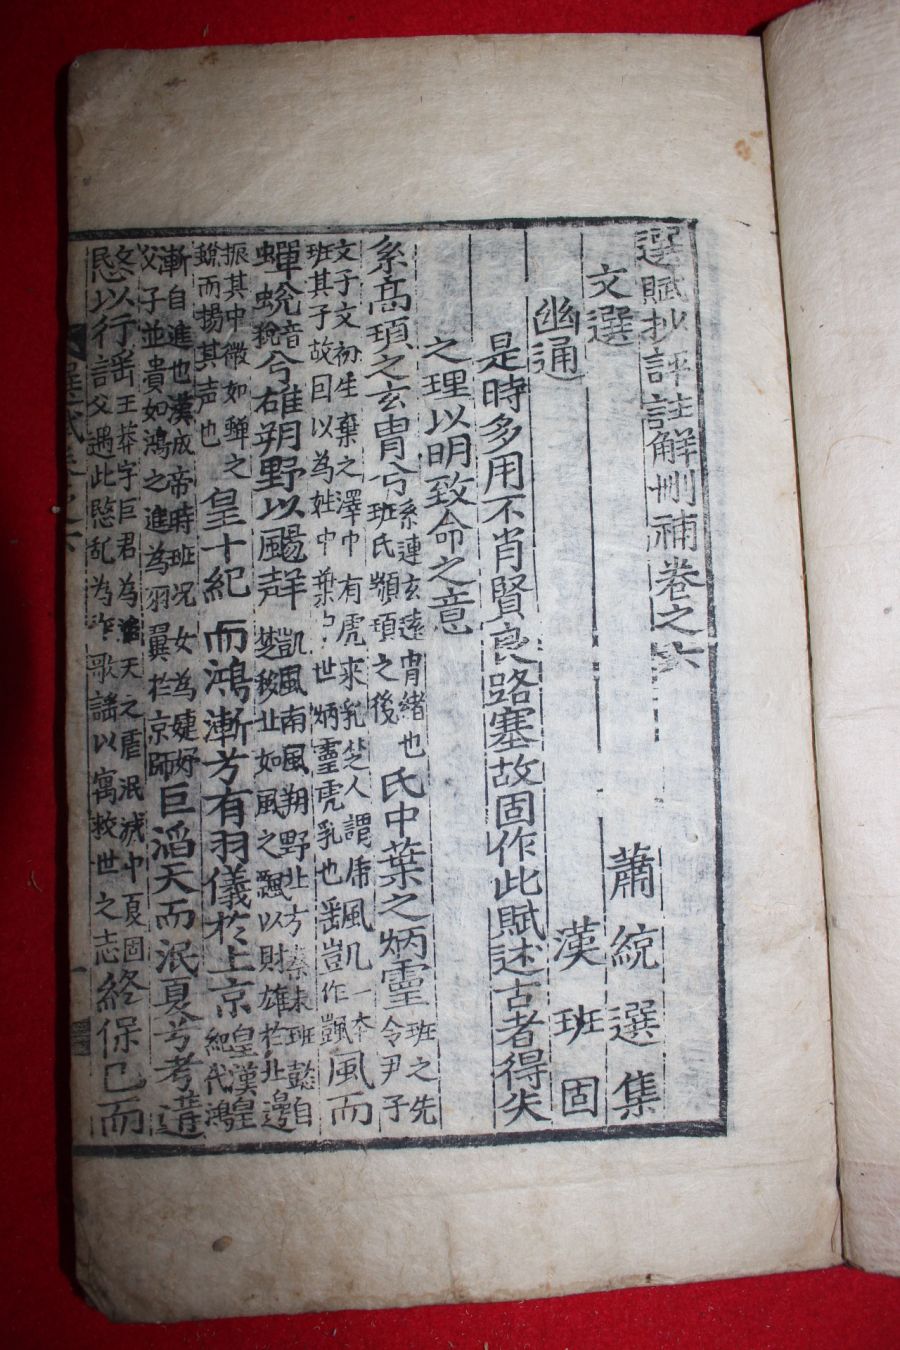 選賦抄評註解刪補卷之六
文選 蕭統選集
幽通 漢班固
是時多用不肖賢良路塞故固作此賦述古者得失
之理以明致命之意
系高頊之玄冑兮系連玄遠冑緒也班氏顓頊之後氏中葉之炳靈班之先令尹子
文子文初生棄之澤中有虎來乳楚人謂虎班其子故因以為姓中葉中世炳靈虎乳也風而
蟬蛻音稅兮雄朔野以颺聲凱風南風朔野北方秦末班懿自楚移北如風之飄以財雄於北邊
振其中微如蟬之蛻而揚其声也皇十紀而鴻漸兮有羽儀於上京皇漢皇紀代鴻
漸自進也漢成帝時班况女為婕妤父子並貴如鴻之進為羽翼於京師巨滔天而泯夏兮考遘
愍以行謠王莽字巨君為滔天之虐泯滅中夏固父遇此愍乱為作歌謠以寓救世之志終保己而